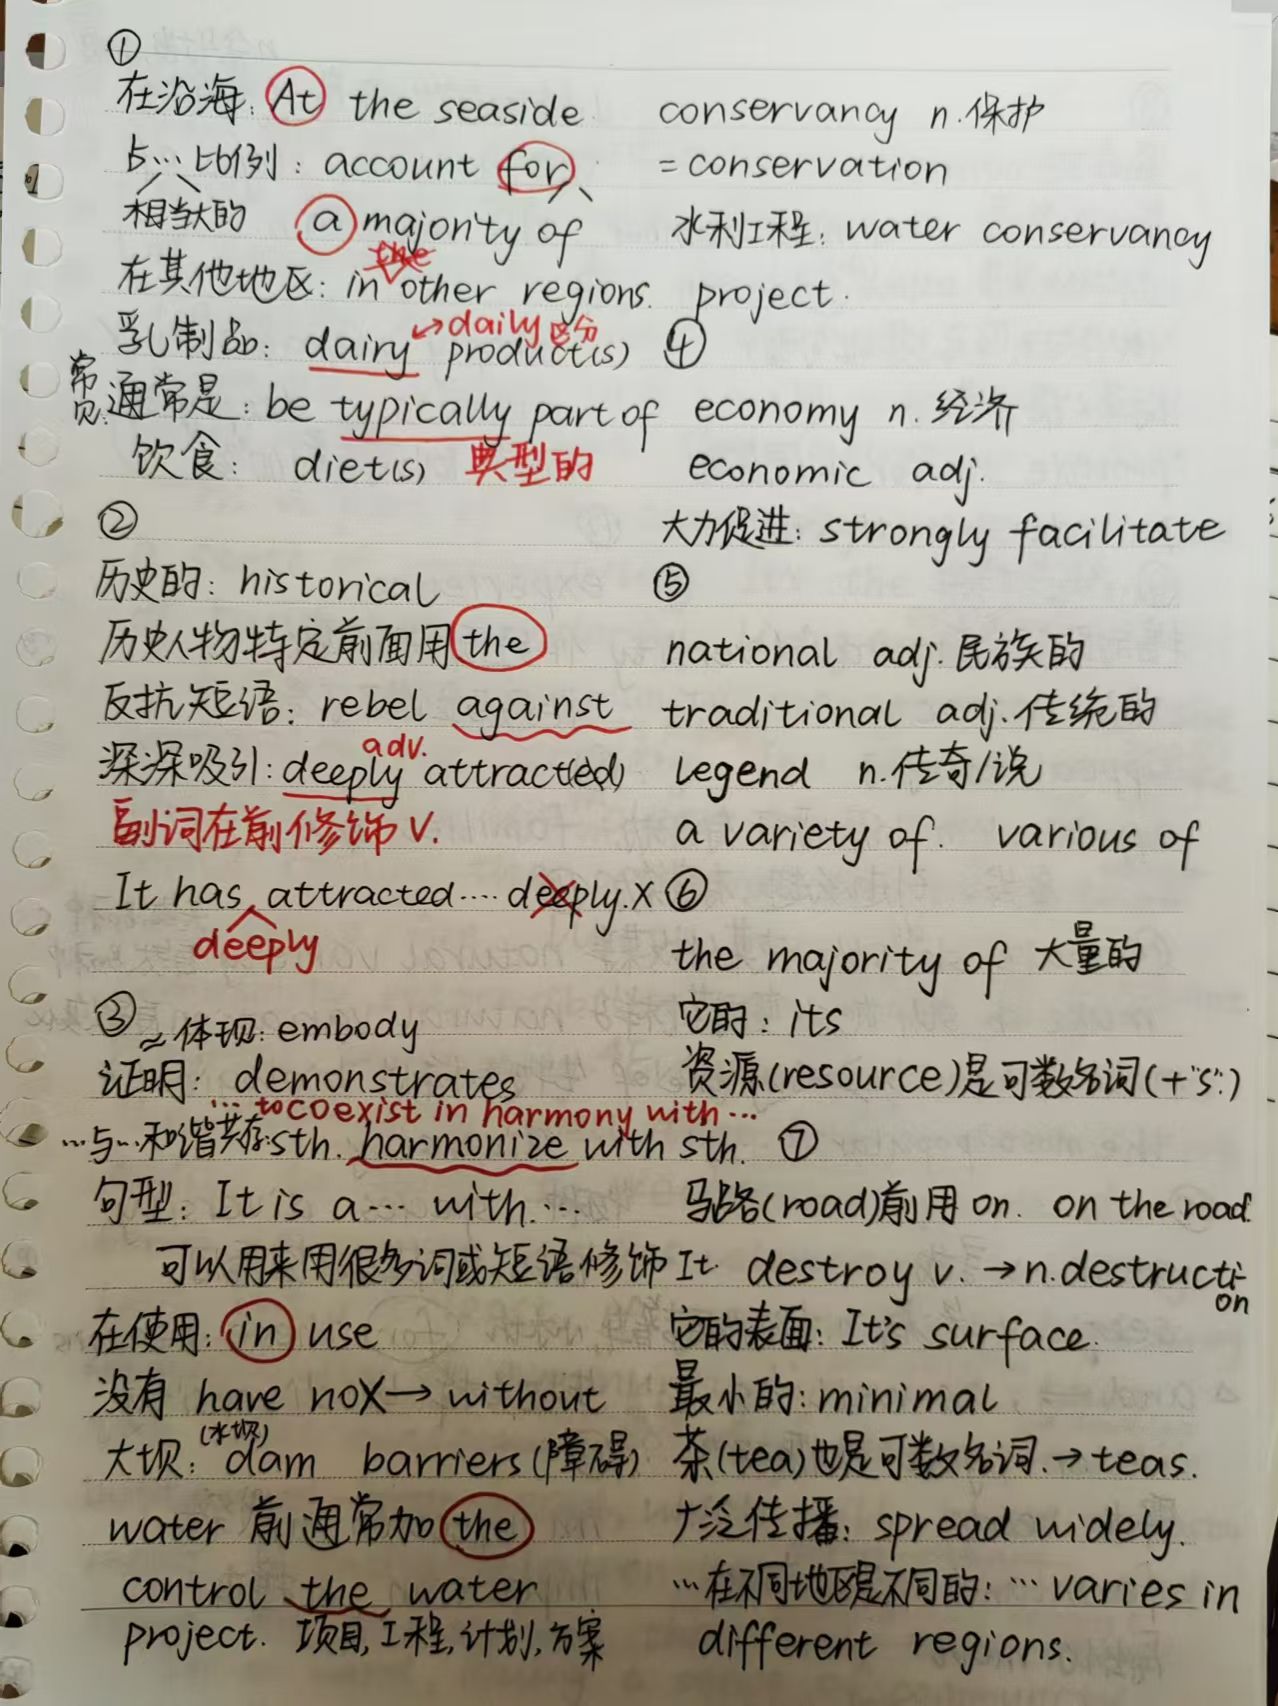 ①
在沿海: At the seaside
占…比例: account for
相当大的 a majority of
在其他地区: in other regions.
乳制品: dairy product(s)
↔daily区分
常见
通常是: be typically part of
饮食: diet(s) 典型的
②
历史的: historical
历史人物特定前面用the
反抗短语: rebel against
adv.
深深吸引: deeply attract(ed)
副词在前修饰 V.
It has attracted.... deeply. X
deeply
③ ≈体现: embody
证明: demonstrates
... to coexist in harmony with ...
...与...和谐共存: sth. harmonize with sth.
句型: It is a... with....
可以用来用很多词或短语修饰 It
在使用: in use
没有 have no X → without
(水坝)
大坝: dam barriers (障碍)
water 前通常加 the
control the water
project. 项目, 工程, 计划, 方案
conservancy n. 保护
= conservation
水利工程: water conservancy
project.
④
economy n. 经济
economic adj.
大力促进: strongly facilitate
⑤
national adj. 民族的
traditional adj. 传统的
legend n. 传奇/说
a variety of. various of
⑥
the majority of 大量的
它的: its
资源(resource)是可数名词(+"s".)
⑦
马路(road)前用 on. on the road.
destroy v. → n. destructi-
on
它的表面: It's surface.
最小的: minimal
茶(tea)也是可数名词. → teas.
广泛传播: spread widely.
...在不同地区是不同的: ... varies in
different regions.